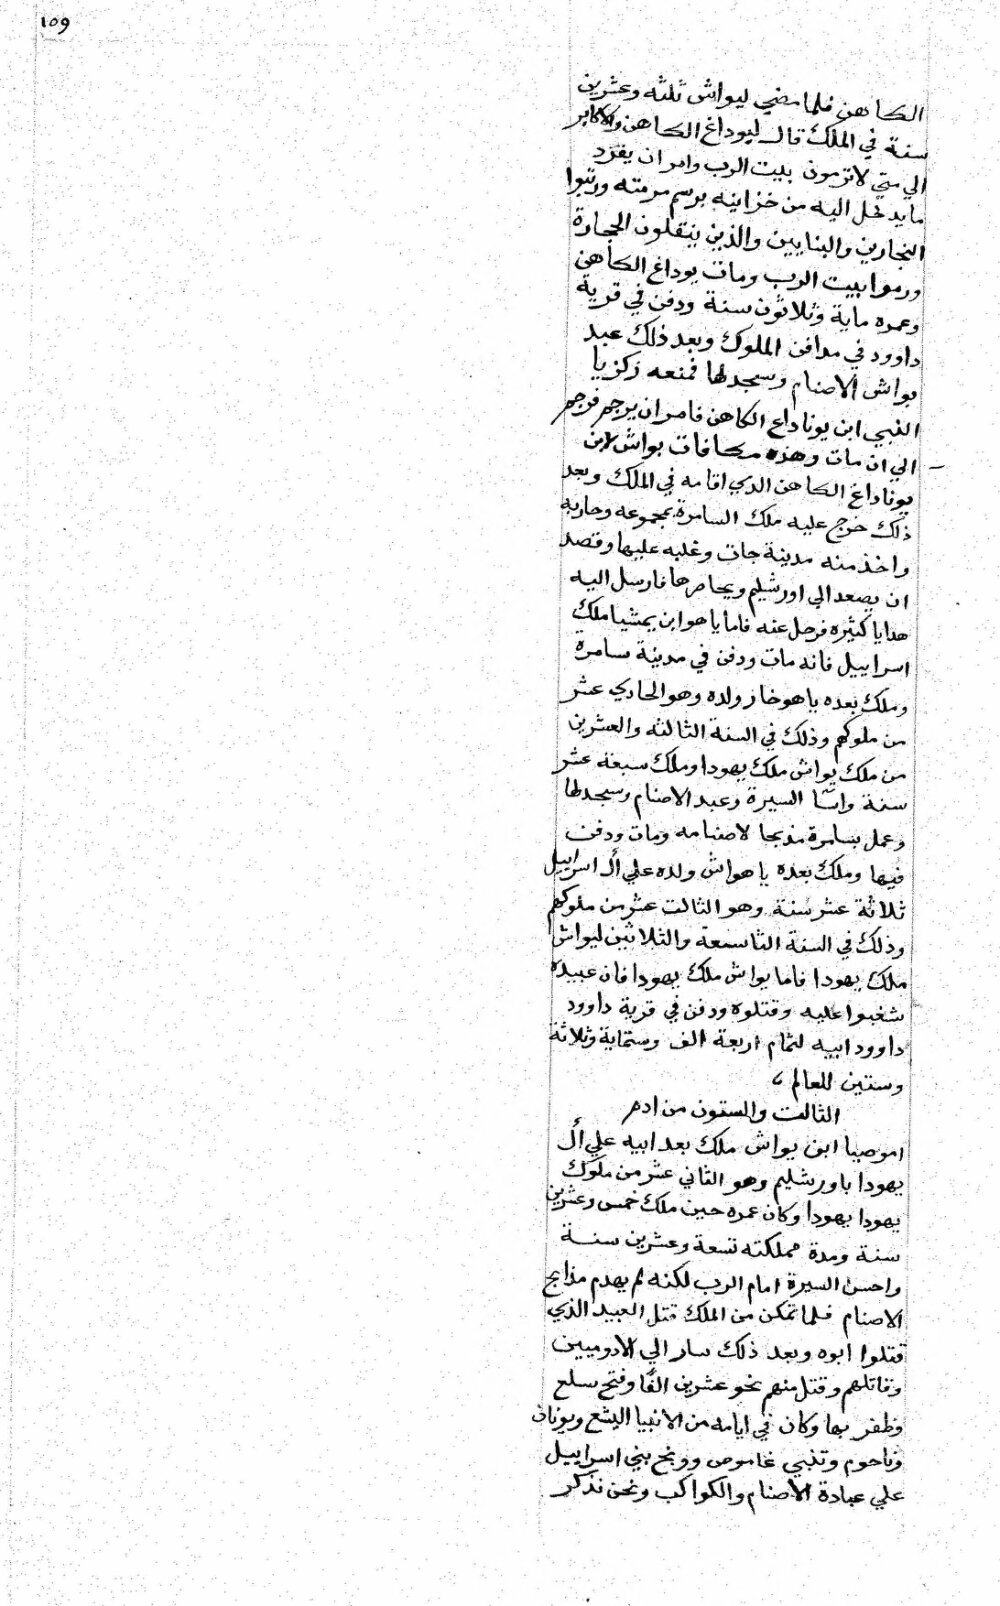 ١٥٩
الكاهن فلما مضي ليواش ثلثه وعشرين
سنة في الملك قال ليوداغ الكاهن والاكابر
الي متي لا ترمون بيت الرب وامر ان يفرد
ما يدخل اليه من خزاينه برسم مرمته ورتبوا
النجارين والبنايين والذين ينقلون الحجارة
ورموا بيت الرب ومات يوداغ الكاهن
وعمره ماية وثلاثون سنة ودفن في قرية
داوود في مدافن الملوك وبعد ذلك عبد
يواش الاصنام وسجد لها فمنعه زكريا
النبي ابن يوناداع الكاهن فامر ان يرجم فرجم
الي ان مات وهذه مكافات يواش لابن
يوناداغ الكاهن الدي اقامه في الملك وبعد
ذلك خرج عليه ملك السامرة بمجموعه وحاربه
واخذ منه مدينة جات وغلبه عليها وقصد
ان يصعد الي اورشليم ويحاصرها فارسل اليه
هدايا كثيره فرحل عنه فاما ياهو ابن يمشيا ملك
اسراييل فانه مات ودفن في مدينة سامرة
وملك بعده ياهوخاز ولده وهو الحادي عشر
من ملوكهم وذلك في السنة الثالثه والعشرين
من ملك يواش ملك يهودا وملك سبعة عشر
سنة واسآ السيرة وعبد الاصنام وسجد لها
وعمل بسامرة مذبحا لاصنامه ومات ودفن
فيها وملك بعده ياهواش ولده علي أل اسراييل
ثلاثة عشر سنة وهو الثالت عشر من ملوكهم
وذلك في السنة التاسعة والثلاثين ليواش
ملك يهودا فاما يواش ملك يهودا فان عبيده
شغبوا عليه وقتلوه ودفن في قرية داوود
داوود ابيه لتمام اربعة الف وستماية وثلاثة
وستين للعالم ،
الثالت والستون من ادم
اموصيا ابن يواش ملك بعد ابيه علي أل
يهودا باورشليم وهو الثاني عشر من ملوك
يهودا يهودا وكان عمره حين ملك خمس وعشرين
سنة ومدة مملكته تسعة وعشرين سنة
واحسن السيرة امام الرب لكنه لم يهدم مذابح
الاصنام فلما تمكن من الملك قتل العبيد الذي
قتلوا ابوه وبعد ذلك سار الي الادوميين
وقاتلهم وقتل منهم نحو عشرين الفًا وفتح سلع
وظفر بها وكان في ايامه من الانبيا اليشع ويونان
وناحوم وتنبي غاموص ووبخ بني اسراييل
علي عبادة الاصنام والكواكب ونحن نذكر